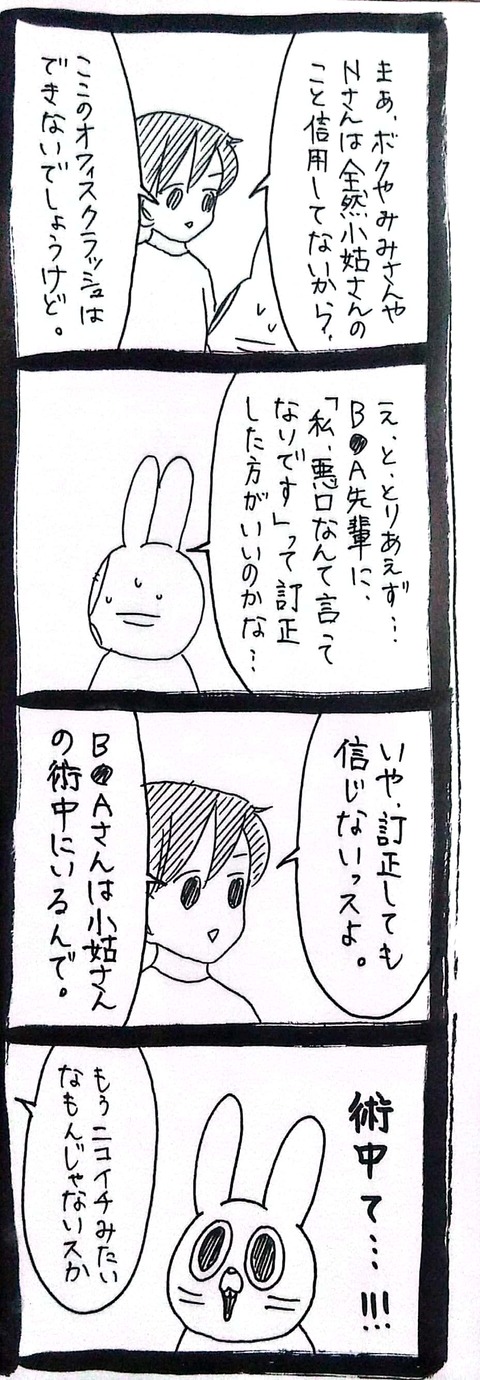 まあ、ボクやみみさんや
Nさんは全然小姑さんの
こと信用してないから、
ここのオフィスクラッシュは
できないでしょうけど。
え、と、とりあえず…
B●A先輩に、
「私、悪口なんて言って
ないです」って訂正
した方がいいのかな…
いや、訂正しても
信じないっスよ。
B●Aさんは小姑さん
の術中にいるんで。
術中て…!!!
もうニコイチみたい
なもんじゃないスか